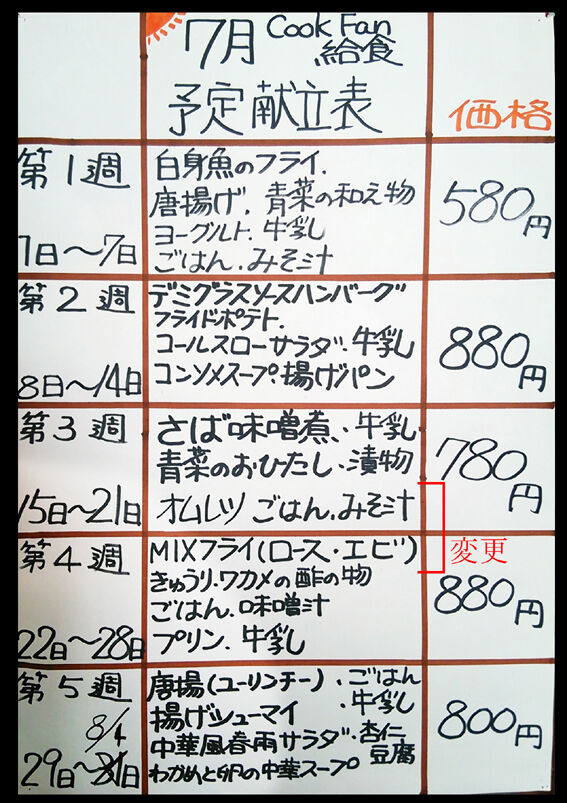 7月 Cook Fan
給食
予定献立表
価格
第1週
1日〜7日
白身魚のフライ.
唐揚げ. 青菜の和え物
ヨーグルト. 牛乳
ごはん.みそ汁
580円
第2週
8日〜14日
デミグラスソースハンバーグ
フライドポテト.
コールスローサラダ・牛乳
コンソメスープ・揚げパン
880円
第3週
15日〜21日
さば味噌煮、牛乳
青菜のおひたし・漬物
オムレツ ごはん.みそ汁
780円
変更
第4週
22日〜28日
MIXフライ(ロース・エビ)
きゅうり.ワカメの酢の物
ごはん.味噌汁
プリン. 牛乳
880円
第5週
8/4
29日〜31日
唐揚(ユーリンチー)・ごはん
揚げシューマイ ・牛乳
中華風春雨サラダ・杏仁豆腐
わかめと卵の中華スープ
800円